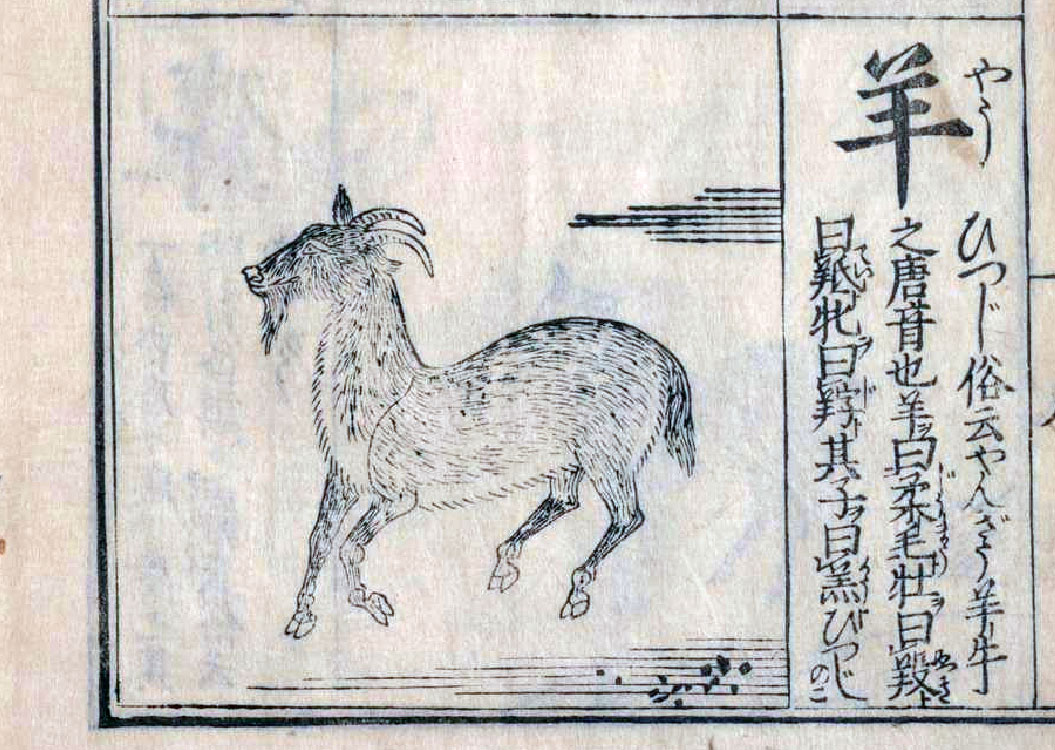 羊
やう
ひつじ俗云やんざう羊牛
之唐音也羊ヲ曰柔毛牡ヲ曰羖
曰羝牝ヲ曰牂其子ヲ曰羔ひつじ
のこ